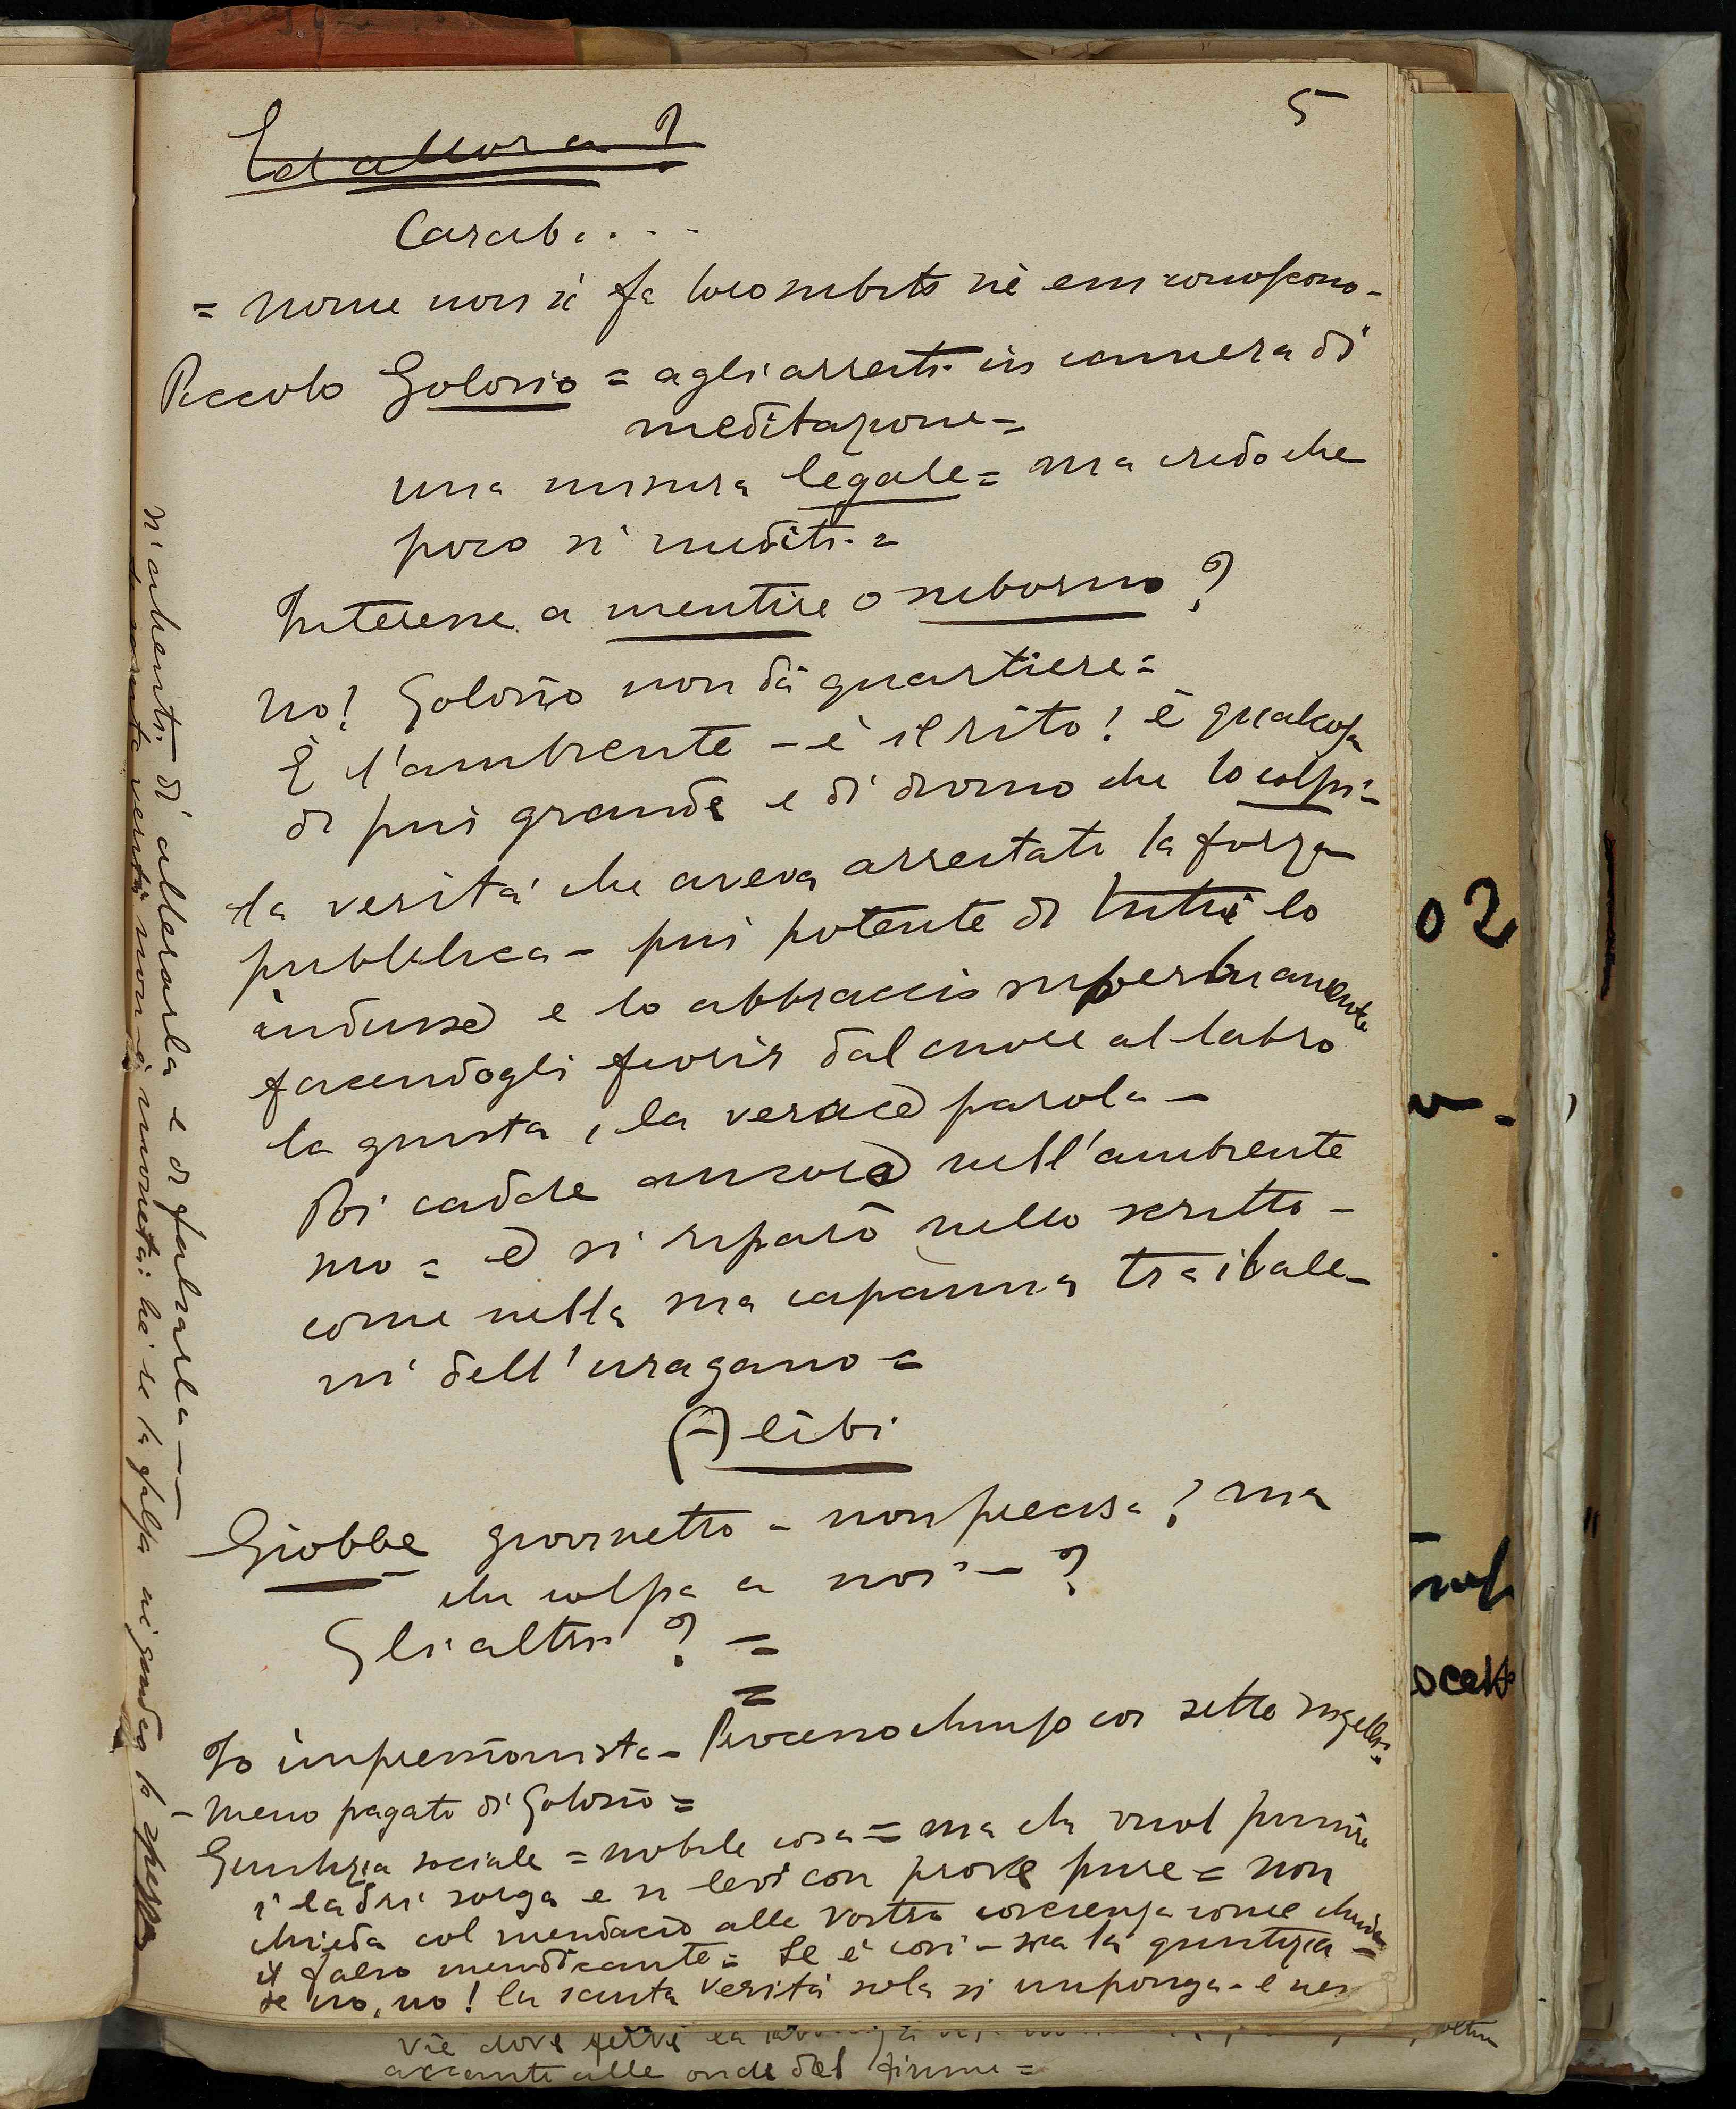 5
Ed allora?
Carab....
= nome non si fa loro subito nè essi conoscono -
Piccolo Golosio = agli arresti in camera di
meditazione =
una misura legale = ma credo che
poco si mediti =
Interesse a mentire o subornio?
No! Golosio non dà quartiere =
È l'ambiente - è il rito! è qualcosa
di più grande e di divino che lo colpì -
la verità che aveva arrestato la forza
pubblica - più potente di tutti lo
indusse e lo abbracciò superbiamente
facendogli fiorir dal cuore al labro
la giusta, la verace parola -
Poi cadde ancora nell'ambiente
suo = e si riparò nello scritto -
come nella sua capanna tra i bale-
ni dell'uragano =
Alibi
Giobbe giovinetto - non precisa? ma
che colpa a noi - ?
Gli altri? =
=
Io impressionista - Processo chiuso coi sette sigelli:
- Meno pagato di Golosio =
Giustizia sociale = nobile cosa = ma che vuol punire
i ladri sorga e si levi con prove pure = non
chieda col mendacio alla vostra coscienza come chiede
il falso mendicante = Se è così - sia la giustizia =
se no, no! la santa verità sola si imponga - e nes
si attenti di alterarla e di falsarla - - -
la santa verità non è moneta: chè se la falsa
vie dove
accanto alle onde del fiume =
02